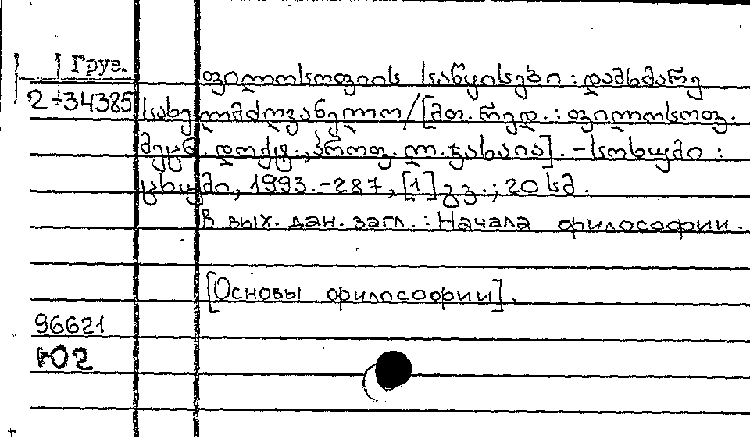 Груз.
2-34385
ფილოსოფიის საწყისები : დამხმარე
სახელმძღვანელო / [მთ. რედ. : ფილოსოფ.
მეცნ. დოქტ., პროფ. ლ. ჯახაია]. - სოხუმი :
ცხუმი, 1993. - 287, [1] გვ. ; 20 სმ.
В вых. дан. загл. : Начала философии.
[Основы философии].
96621
Ю2